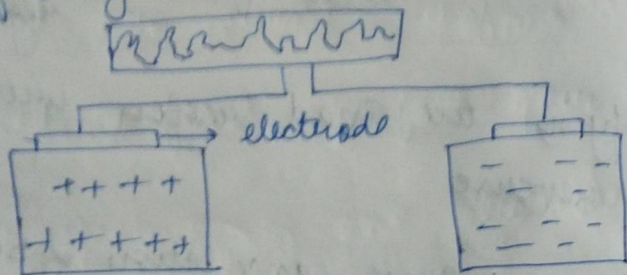 electrode
+ + + +
+ + + + +